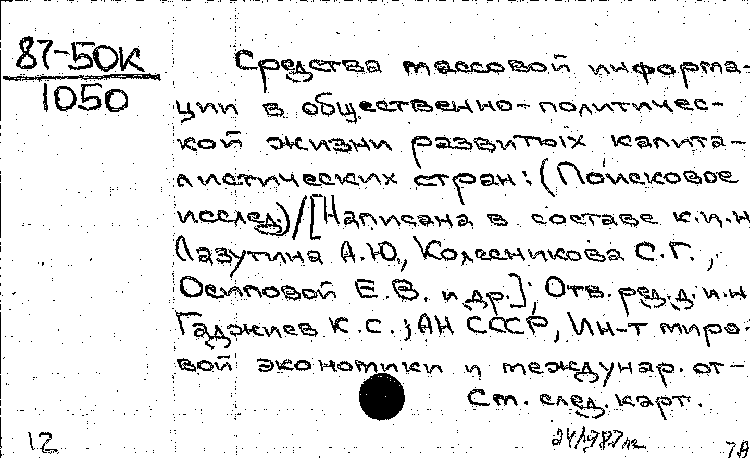 87-50К
1050
Средства массовой информа-
ции в общественно-политичес-
кой жизни развитых капита-
листических стран: (Поисковое
исслед.)/[Написана в составе к.и.н
Лазутина А.Ю., Колесникова С.Г.,
Осиповой Е.В. и др.]; Отв. ред. д.и.н
Гаджиев К.С.; АН СССР, Ин-т миро-
вой экономики и междунар. от-
См. след. карт.
12